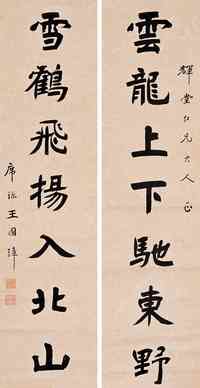 輝堂仁兄大人正
雲龍上下馳東野
雪鶴飛揚入北山
王國